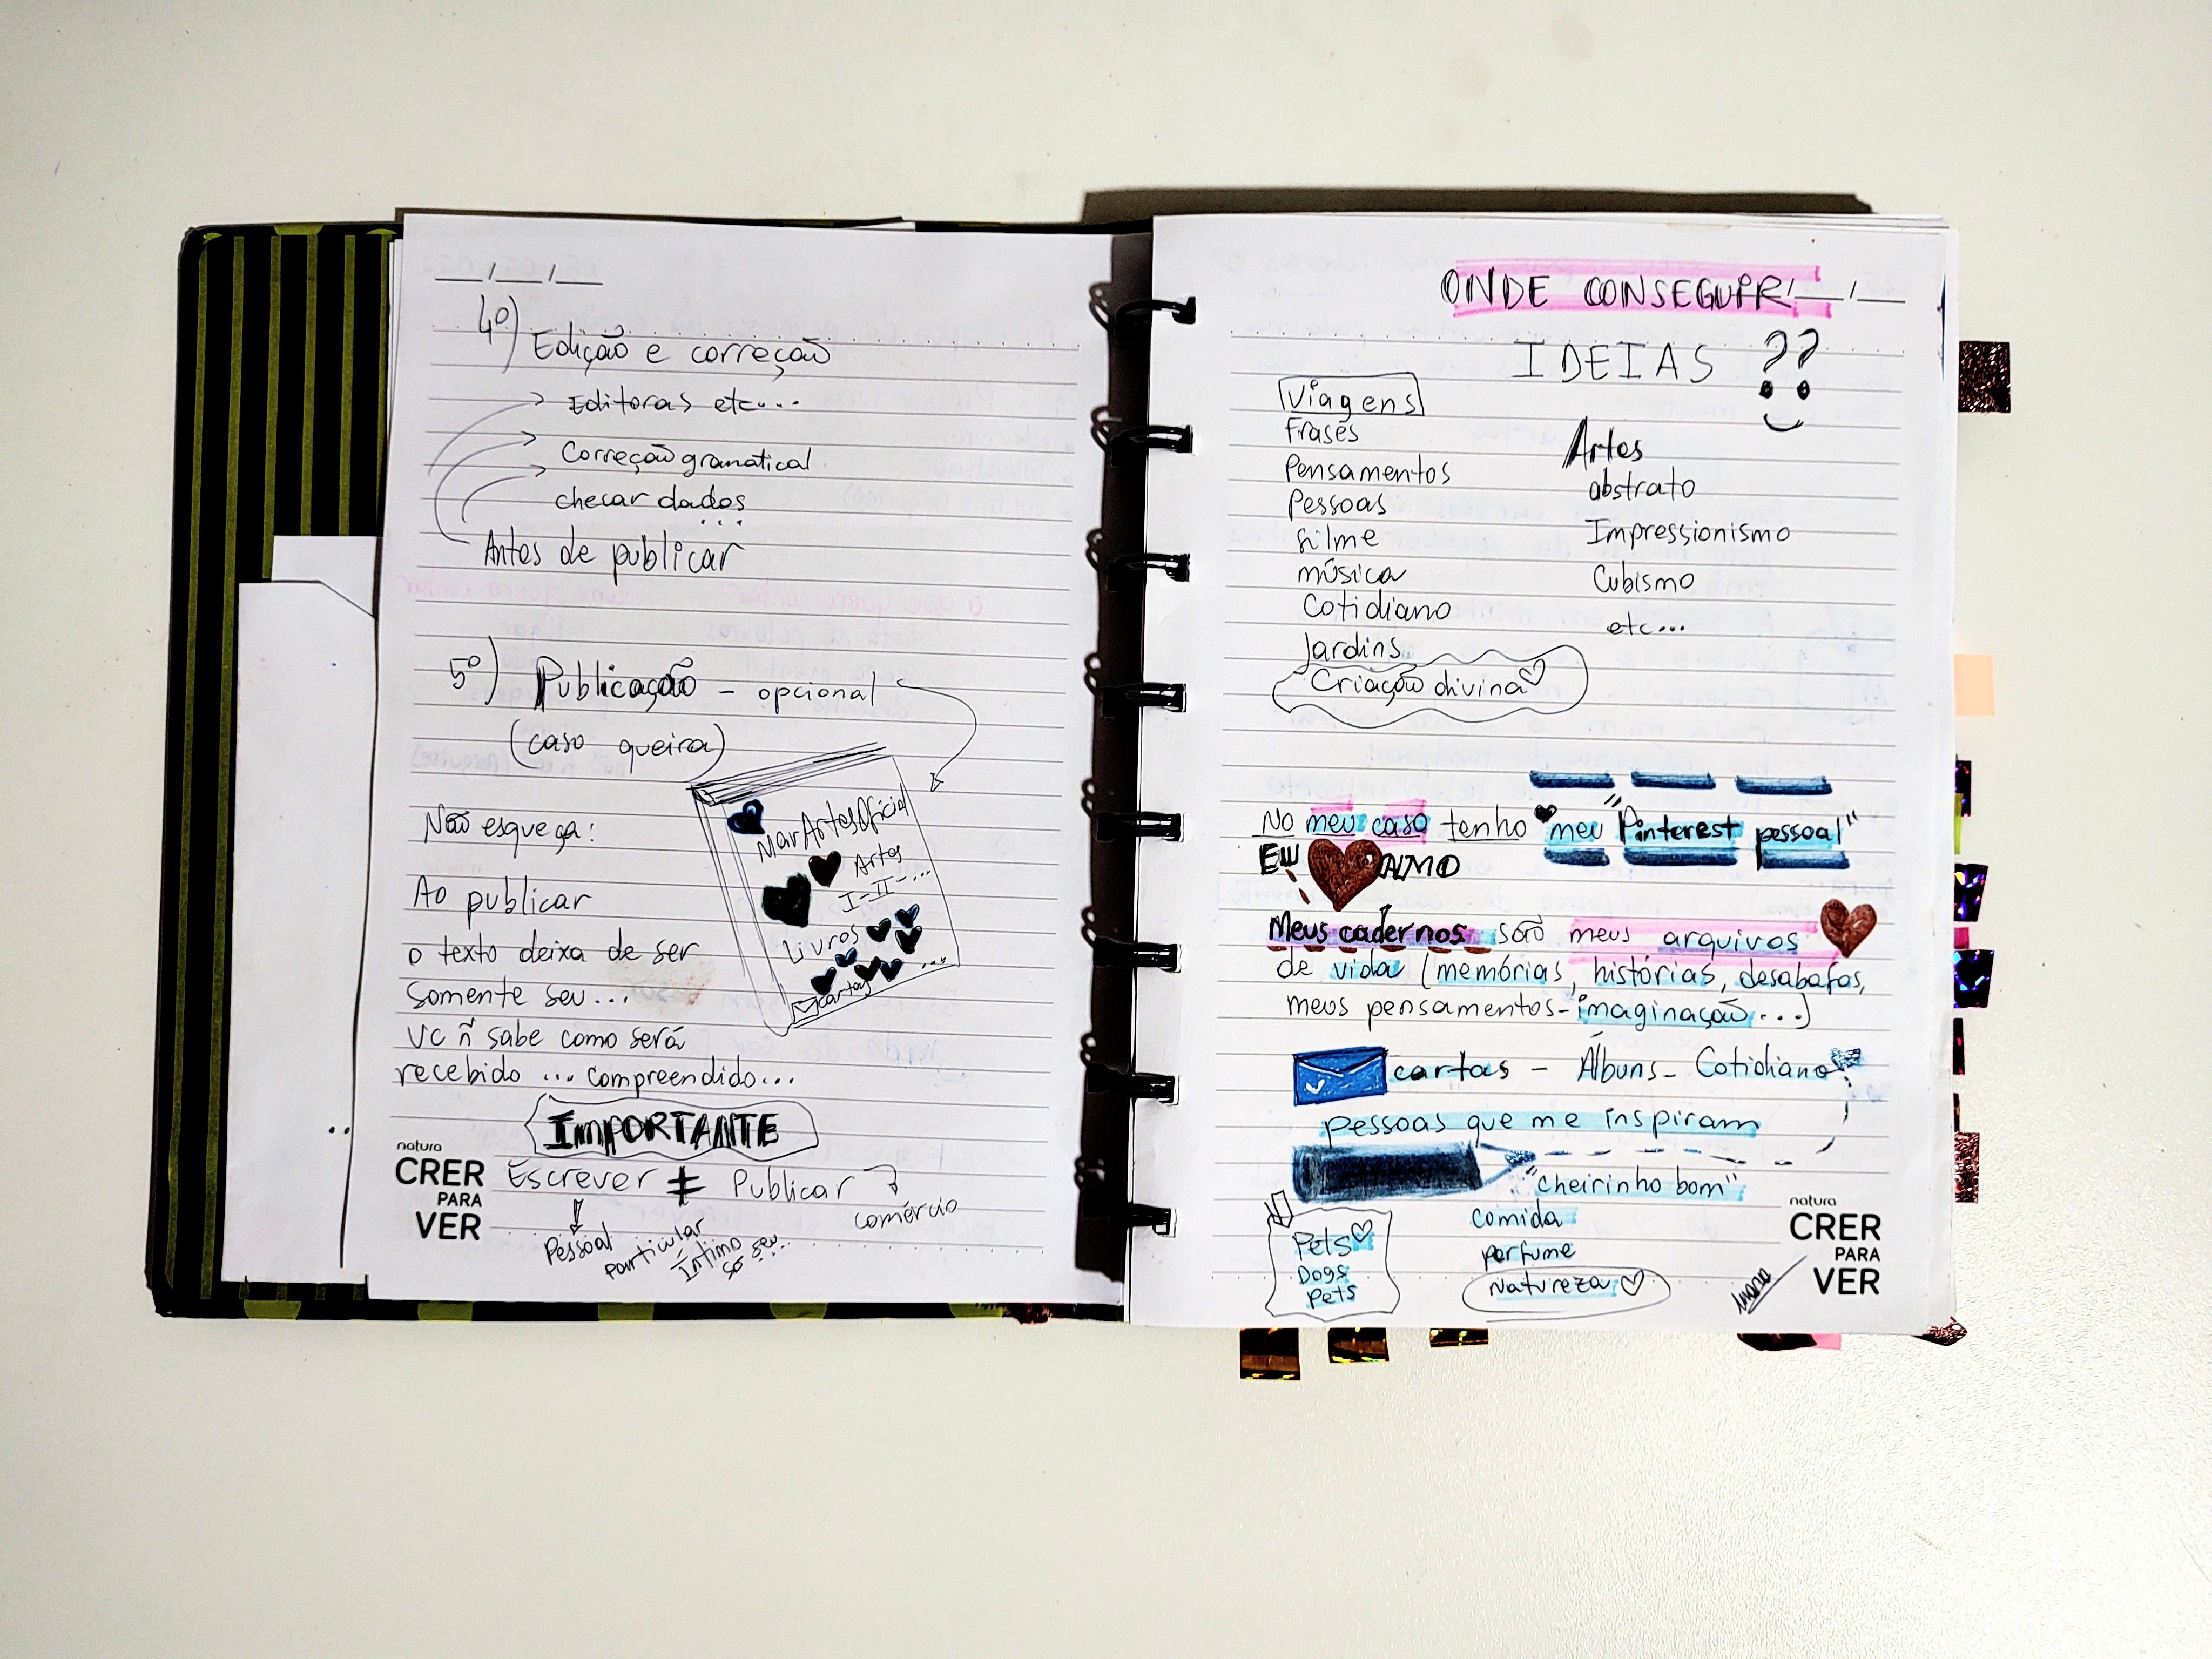 __/__/__
4º) Edição e correção
Editoras etc...
Correção gramatical
checar dados
...
Antes de publicar
5º) Publicação - opcional
(caso queira)
MarArtesOficial
Artes
I-II-...
Livros
...
cartas
Não esqueça:
Ao publicar
o texto deixa de ser
somente seu...
vc ñ sabe como será
recebido ... compreendido...
IMPORTANTE
Escrever ≠ Publicar
comércio
Pessoal
particular
Íntimo
só seu...
natura
CRER
PARA
VER
ONDE CONSEGUIR __/__/__
IDEIAS ??
Viagens
Frases
Pensamentos
Pessoas
filme
música
Cotidiano
Jardins
Criação divina
Artes
abstrato
Impressionismo
Cubismo
etc...
No meu caso tenho "meu Pinterest pessoal"
EU AMO
Meus cadernos são meus arquivos
de vida (memórias, histórias, desabafos,
meus pensamentos - imaginação...)
cartas - Álbuns - Cotidiano
pessoas que me inspiram
"cheirinho bom"
comida
perfume
Natureza
Pets
Dogs
Pets
natura
CRER
PARA
VER